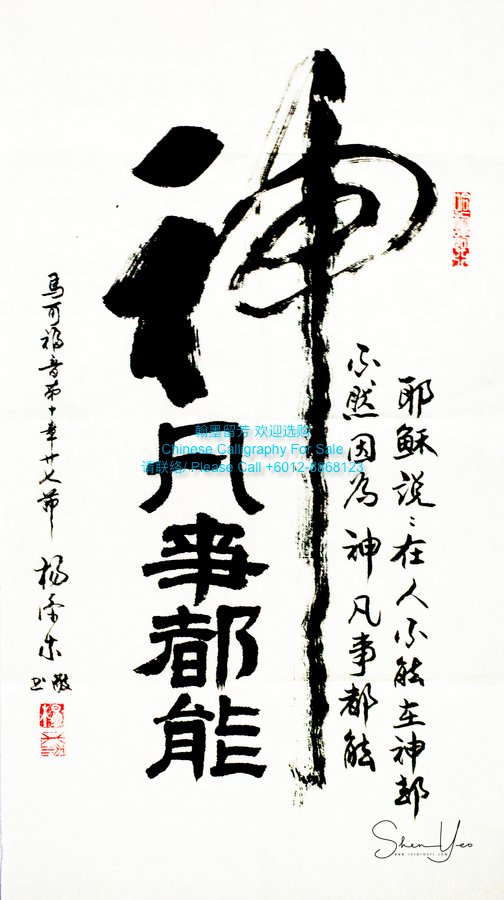 神
凡事都能
耶稣説：在人不能在神却
不然因為神凡事都能
馬可福音第十章廿七節
翰墨留芳 欢迎选购
Chinese Calligraphy For Sale
请联络/ Please Call +6012-8868123
Shen Yeo